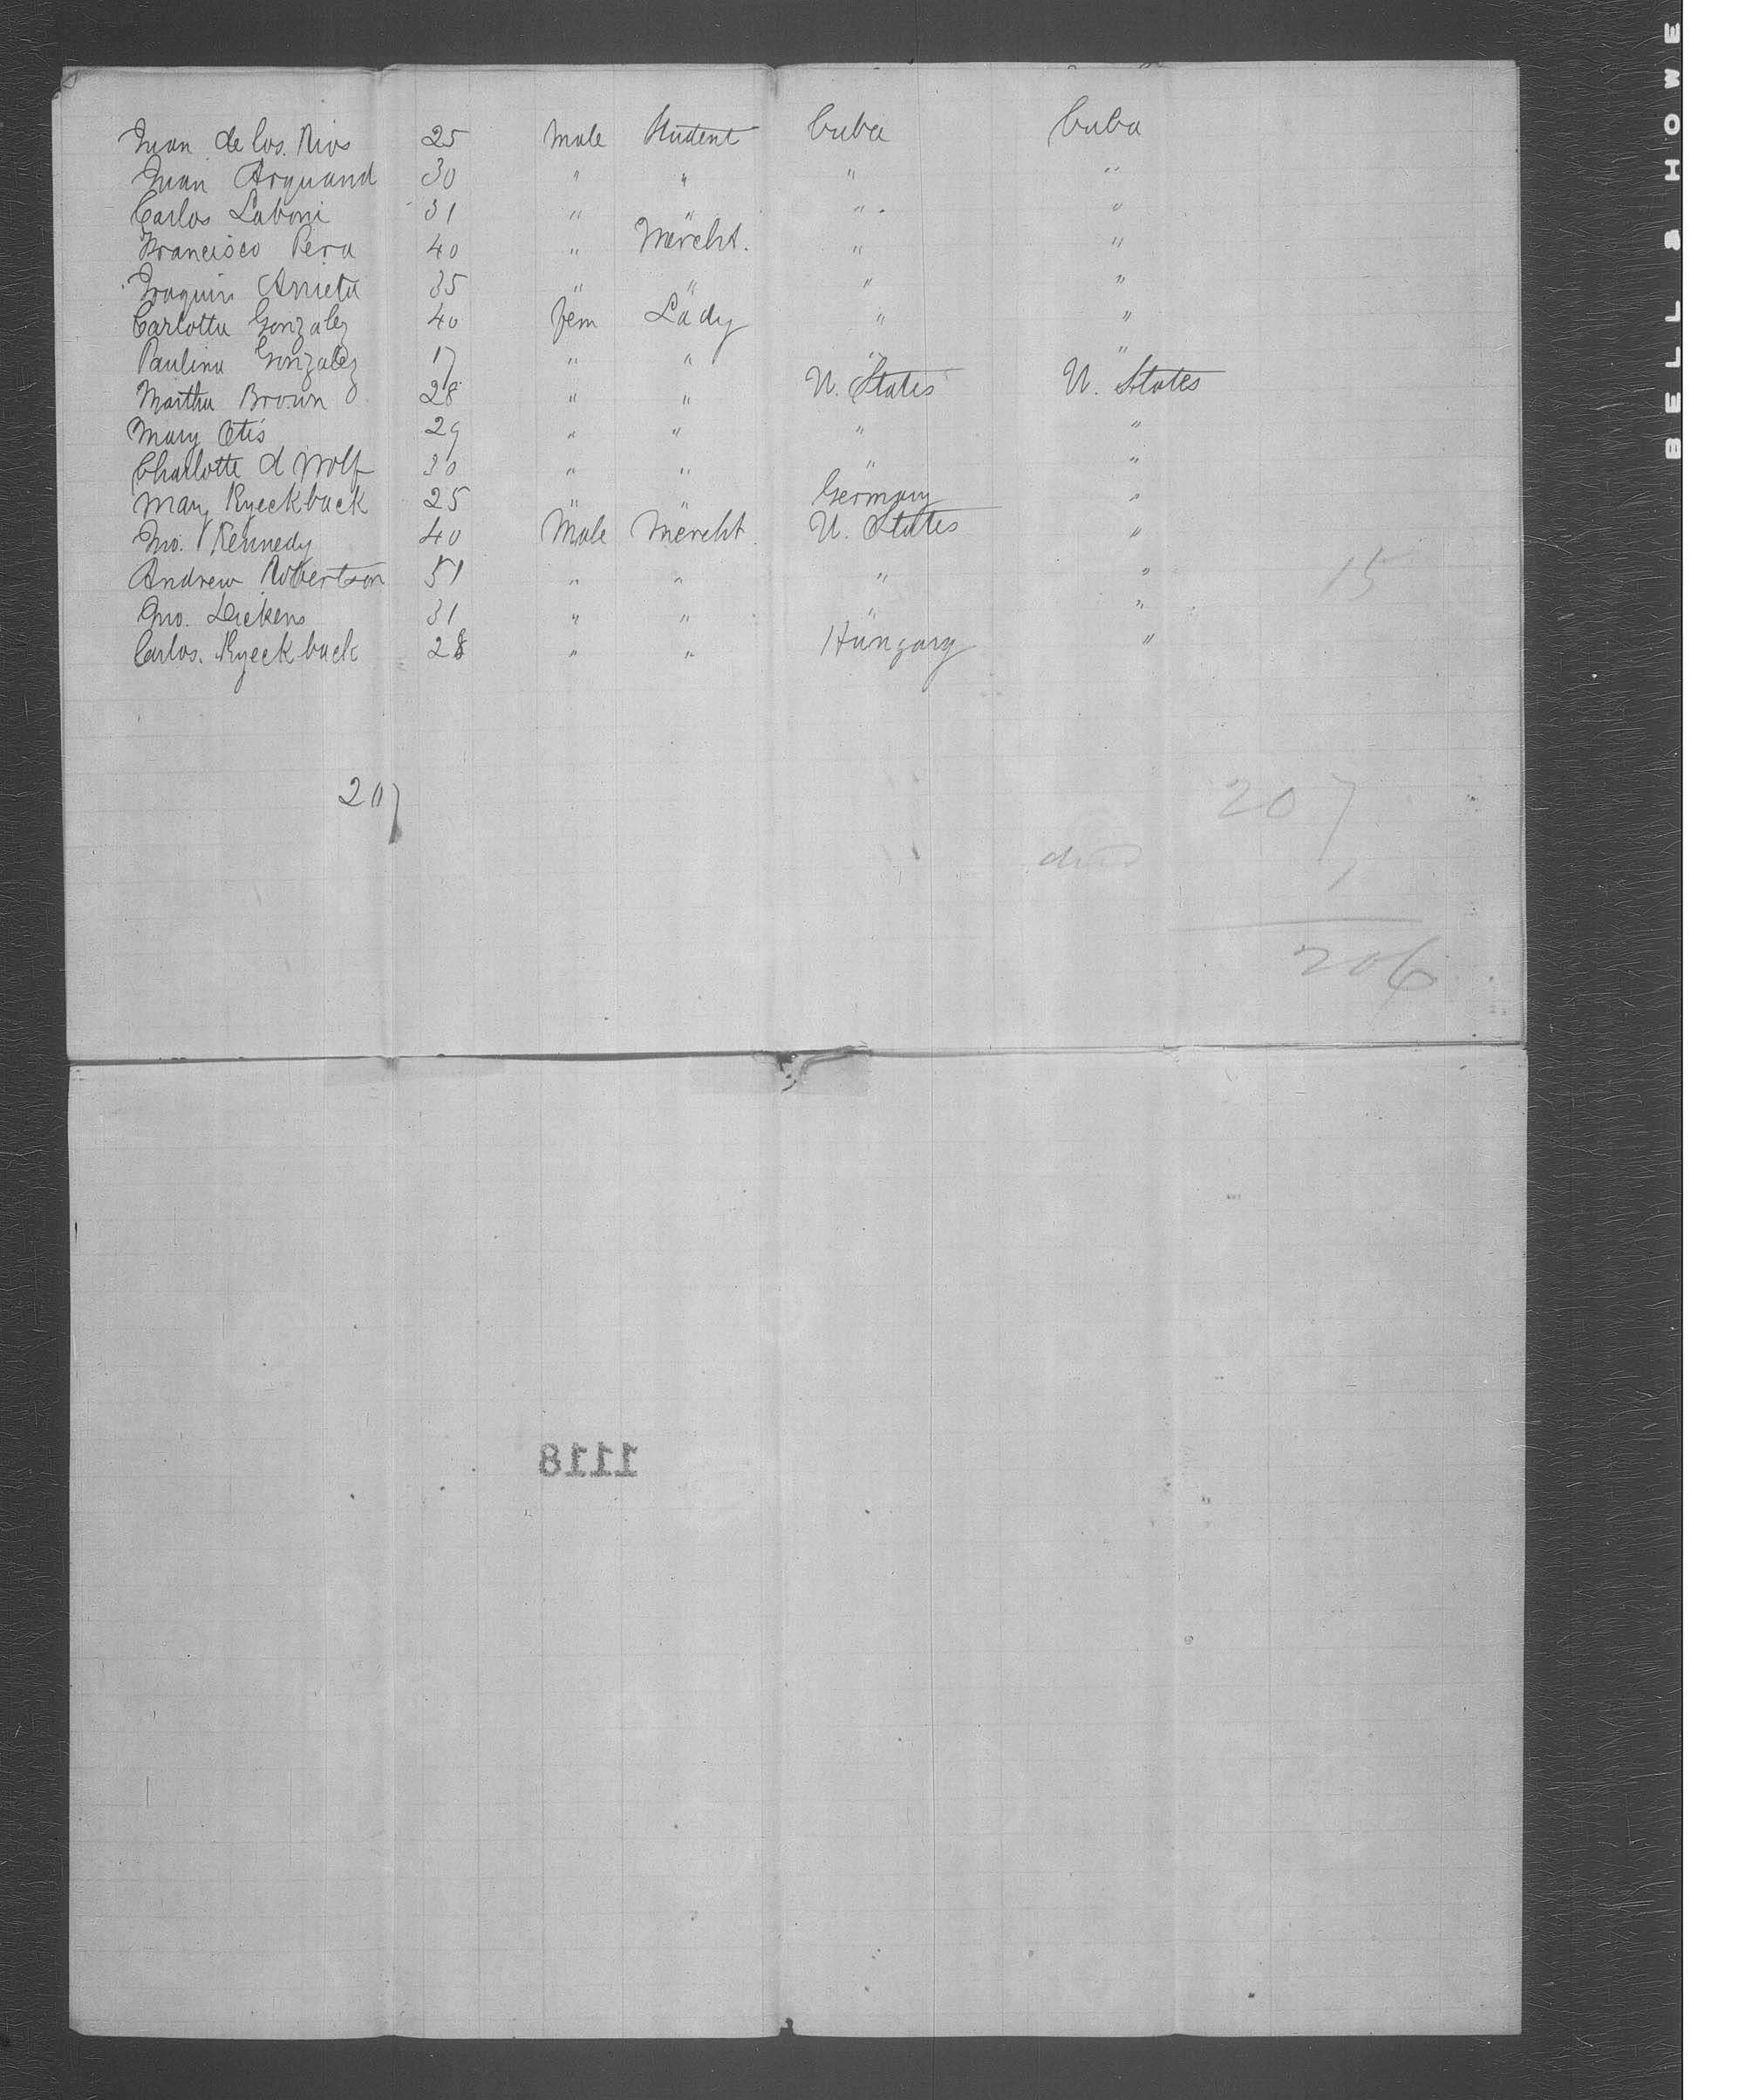 Juan de los. Rios 25 Male Student Cuba Cuba
Juan Arguand 30 " " " "
Carlos Laboni 31 " " " "
Francisco Pera 40 " Mercht. " "
Joaquin Arrieta 35 " " " "
Carlotta Gonzalez 40 fem Lady " "
Paulina Gonzalez 17 " " " "
Martha Brown 28 " " U. States U. States
Mary Otis 29 " " " "
Charlotte d Wolf 30 " " " "
Mary Ryeckback 25 " " Germany "
Jno. Kennedy 40 Male Mercht. U. States "
Andrew Robertson 51 " " " "
15
Jno. Dickens 31 " " " "
Carlos. Ryeckback 28 " " Hungary "
207 207
died 1
206
1118
BELL & HOWE